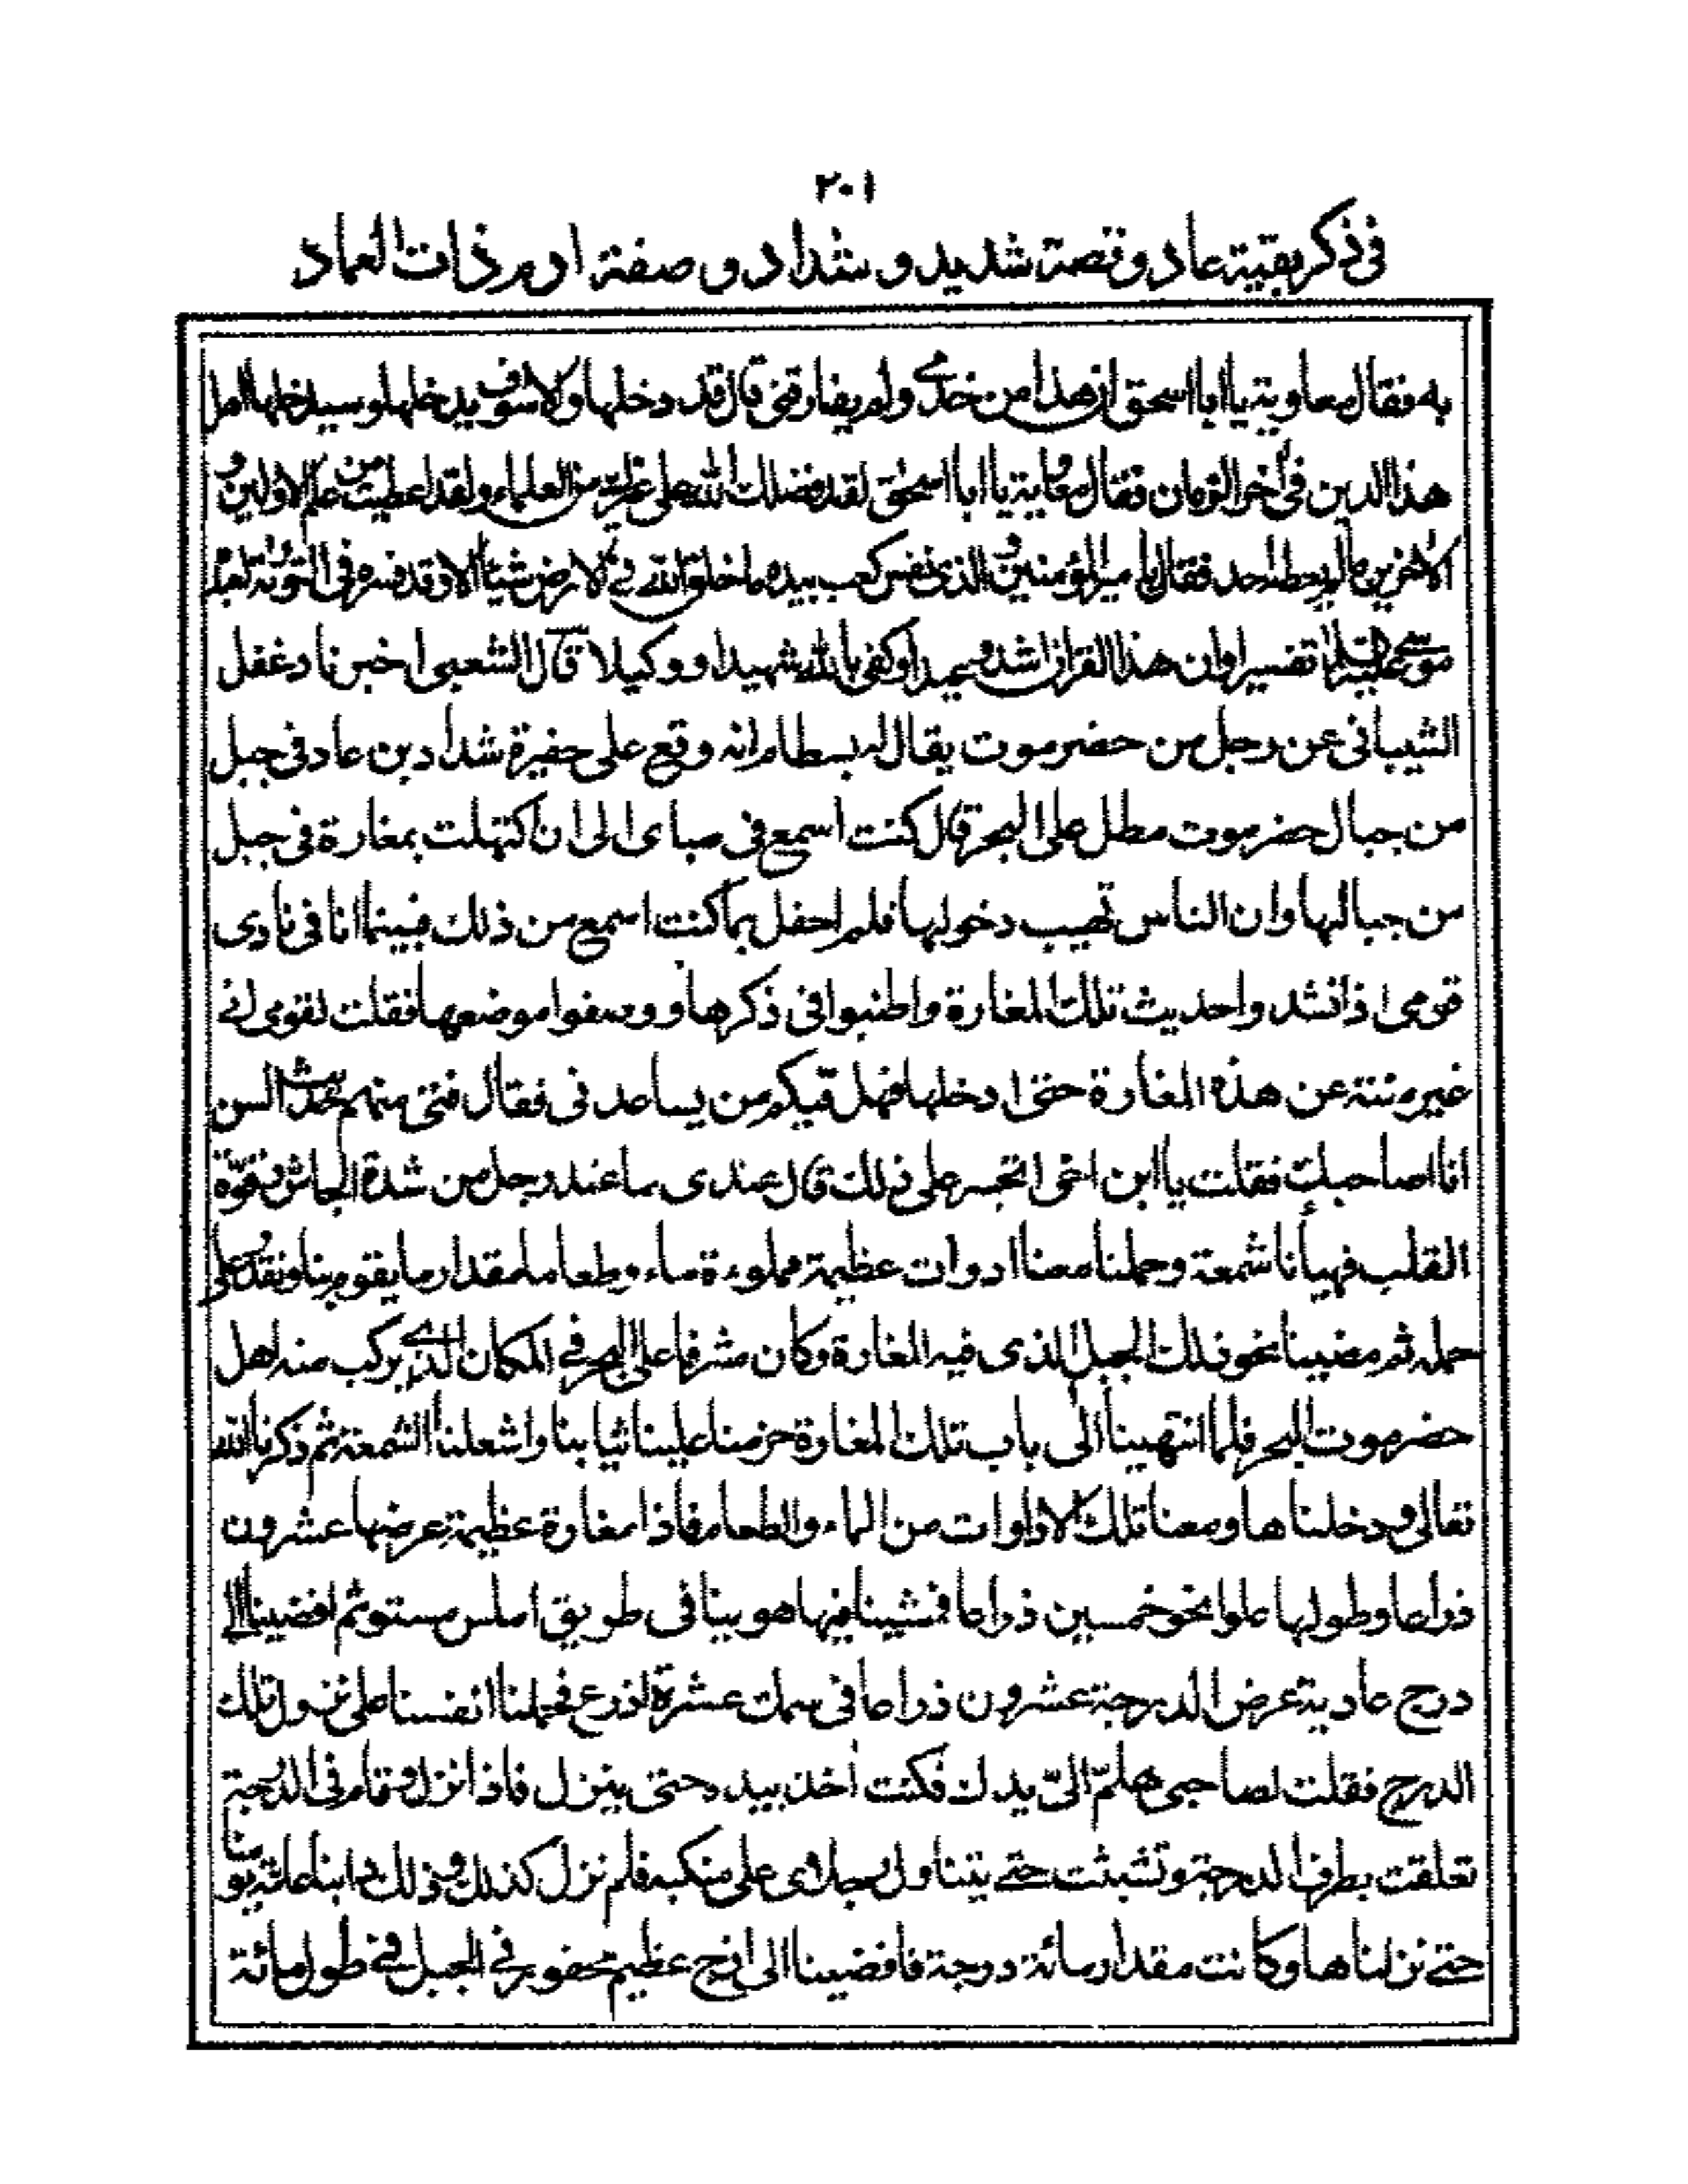 ٢٠١
فى ذكر بقية عاد وقصة شديد وشداد وصفة ارم ذات العماد
به فقال معاوية يا ابا اسحق ان هذا من خدمى ولم يفارقنى قال قد دخلها والا سوف يدخلها وسيدخلها اهل
هذا الدين فى أخر الزمان فقال معاوية يا ابا اسحق لقد فضلك الله على غيرك من العلماء ولقد اعطيت من علم الاولين و
الاخرين ما لم يعطه احد فقال يا امير المؤمنين والذى نفس كعب بيده ما خلق الله فى الارض شيئا الا وقد فسره فى التورية لعبده
موسى عليه السلام تفسيرا وان هذا القران اشد وعيدا وكفى بالله شهيدا ووكيلا قال الشعبى اخبرنا دغفل
الشيبانى عن رجل من حضرموت يقال له بسطام انه وقع على حفيرة شداد بن عاد فى جبل
من جبال حضرموت مطل على البحر قال كنت اسمع فى صباى الى ان اكتهلت بمغارة فى جبل
من جبالها وان الناس تهيب دخولها فلم احفل بما كنت اسمع من ذلك فبينما انا فى نادى
قومى اذ انشدوا حديث تلك المغارة واطنبوا فى ذكرها ووصفوا موضعها فقلت لقومى انى
غير منته عن هذه المغارة حتى ادخلها فهل فيكم من يساعدنى فقال فتى منهم حديث السن
انا اصاحبك فقلت يا ابن اخى اتجسر على ذلك قال عندى ما عند رجل من شدة الجاش وقوّة
القلب فهيأنا شمعة وحملنا معنا ادوات عظيمة مملوءة ماء وطعاما مقدار ما يقوم بنا ونقدر على
حمله ثم مضينا نحو ذلك الجبل الذى فيه المغارة وكان مشرفا على البحر فى المكان الذى يركب منه اهل
حضرموت البحر فلما انتهينا الى باب تلك المغارة حزمنا علينا ثيابنا واشعلنا الشمعة ثم ذكرنا الله
تعالى ودخلناها ومعنا تلك الاداوات من الماء والطعام فاذا مغارة عظيمة عرضها عشرون
ذراعا وطولها علوا نحو خمسين ذراعا فمشينا فيها هوينا فى طريق املس مستو ثم افضينا الى
درج عادية عرض الدرجة عشرون ذراعا فى سمك عشرة اذرع فحملنا انفسنا على نزول تلك
الدرج فقلت لصاحبى هلمّ الىّ يدك فكنت أخذ بيده حتى ينزل فاذا نزل وقام فى الدرجة
تعلقت بطرف الدرجة وتشبثت حتى يتناول رجلاى على منكبه فلم نزل كذلك وذلك دابنا عامة يومنا
حتى نزلناها وكانت مقدار مائة درجة فافضينا الى ازج عظيم محفور فى الجبل فى طول مائة